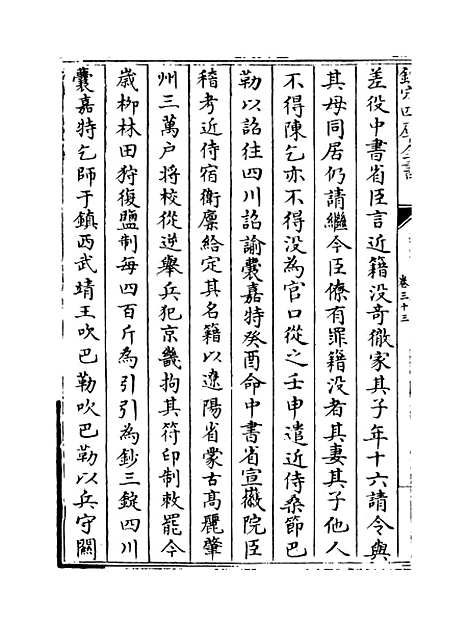 欽定四庫全書
卷三十三
差役中書省臣言近籍没奇徹家其子年十六請令與
其母同居仍請繼今臣僚有罪籍没者其妻其子他人
不得陳乞亦不得没為官口從之壬申遣近侍桑節巴
勒以詔往四川詔諭囊嘉特癸酉命中書省宣徽院臣
稽考近侍宿衛廩給定其名籍以遼陽省蒙古高麗肇
州三萬户将校從逆舉兵犯京畿拘其符印制敕罷今
歲柳林田狩復鹽制每四百斤為引引為鈔三錠四川
囊嘉特乞師于鎮西武靖王吹巴勒吹巴勒以兵守關